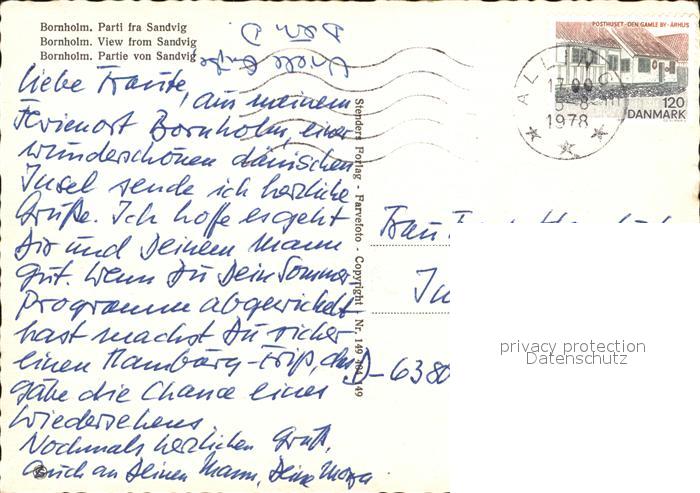 Bornholm. Parti fra Sandvig
Bornholm. View from Sandvig
Bornholm. Partie von Sandvig
Liebe Traute,
aus meinem
Ferienort Bornholm, einer
wunderschönen dänischen
Insel sende ich herzliche
Grüße. Ich hoffe es geht
Dir und Deinem Mann
gut. Wenn Du Dein Sommer-
Programm abgewickelt
hast machst Du sicher
einen Hamburg-Trip, das
gäbe die Chance eines
Wiedersehens.
Nochmals herzlichen Gruß,
auch an Deinen Mann, Deine
Stenders Forlag - Farvefoto - Copyright Nr. 149 404 149
POSTHUSET · DEN GAMLE BY · ÅRHUS
120
DANMARK
ALLINGE
17.00
1978
Frau
D-6380
privacy protection
Datenschutz